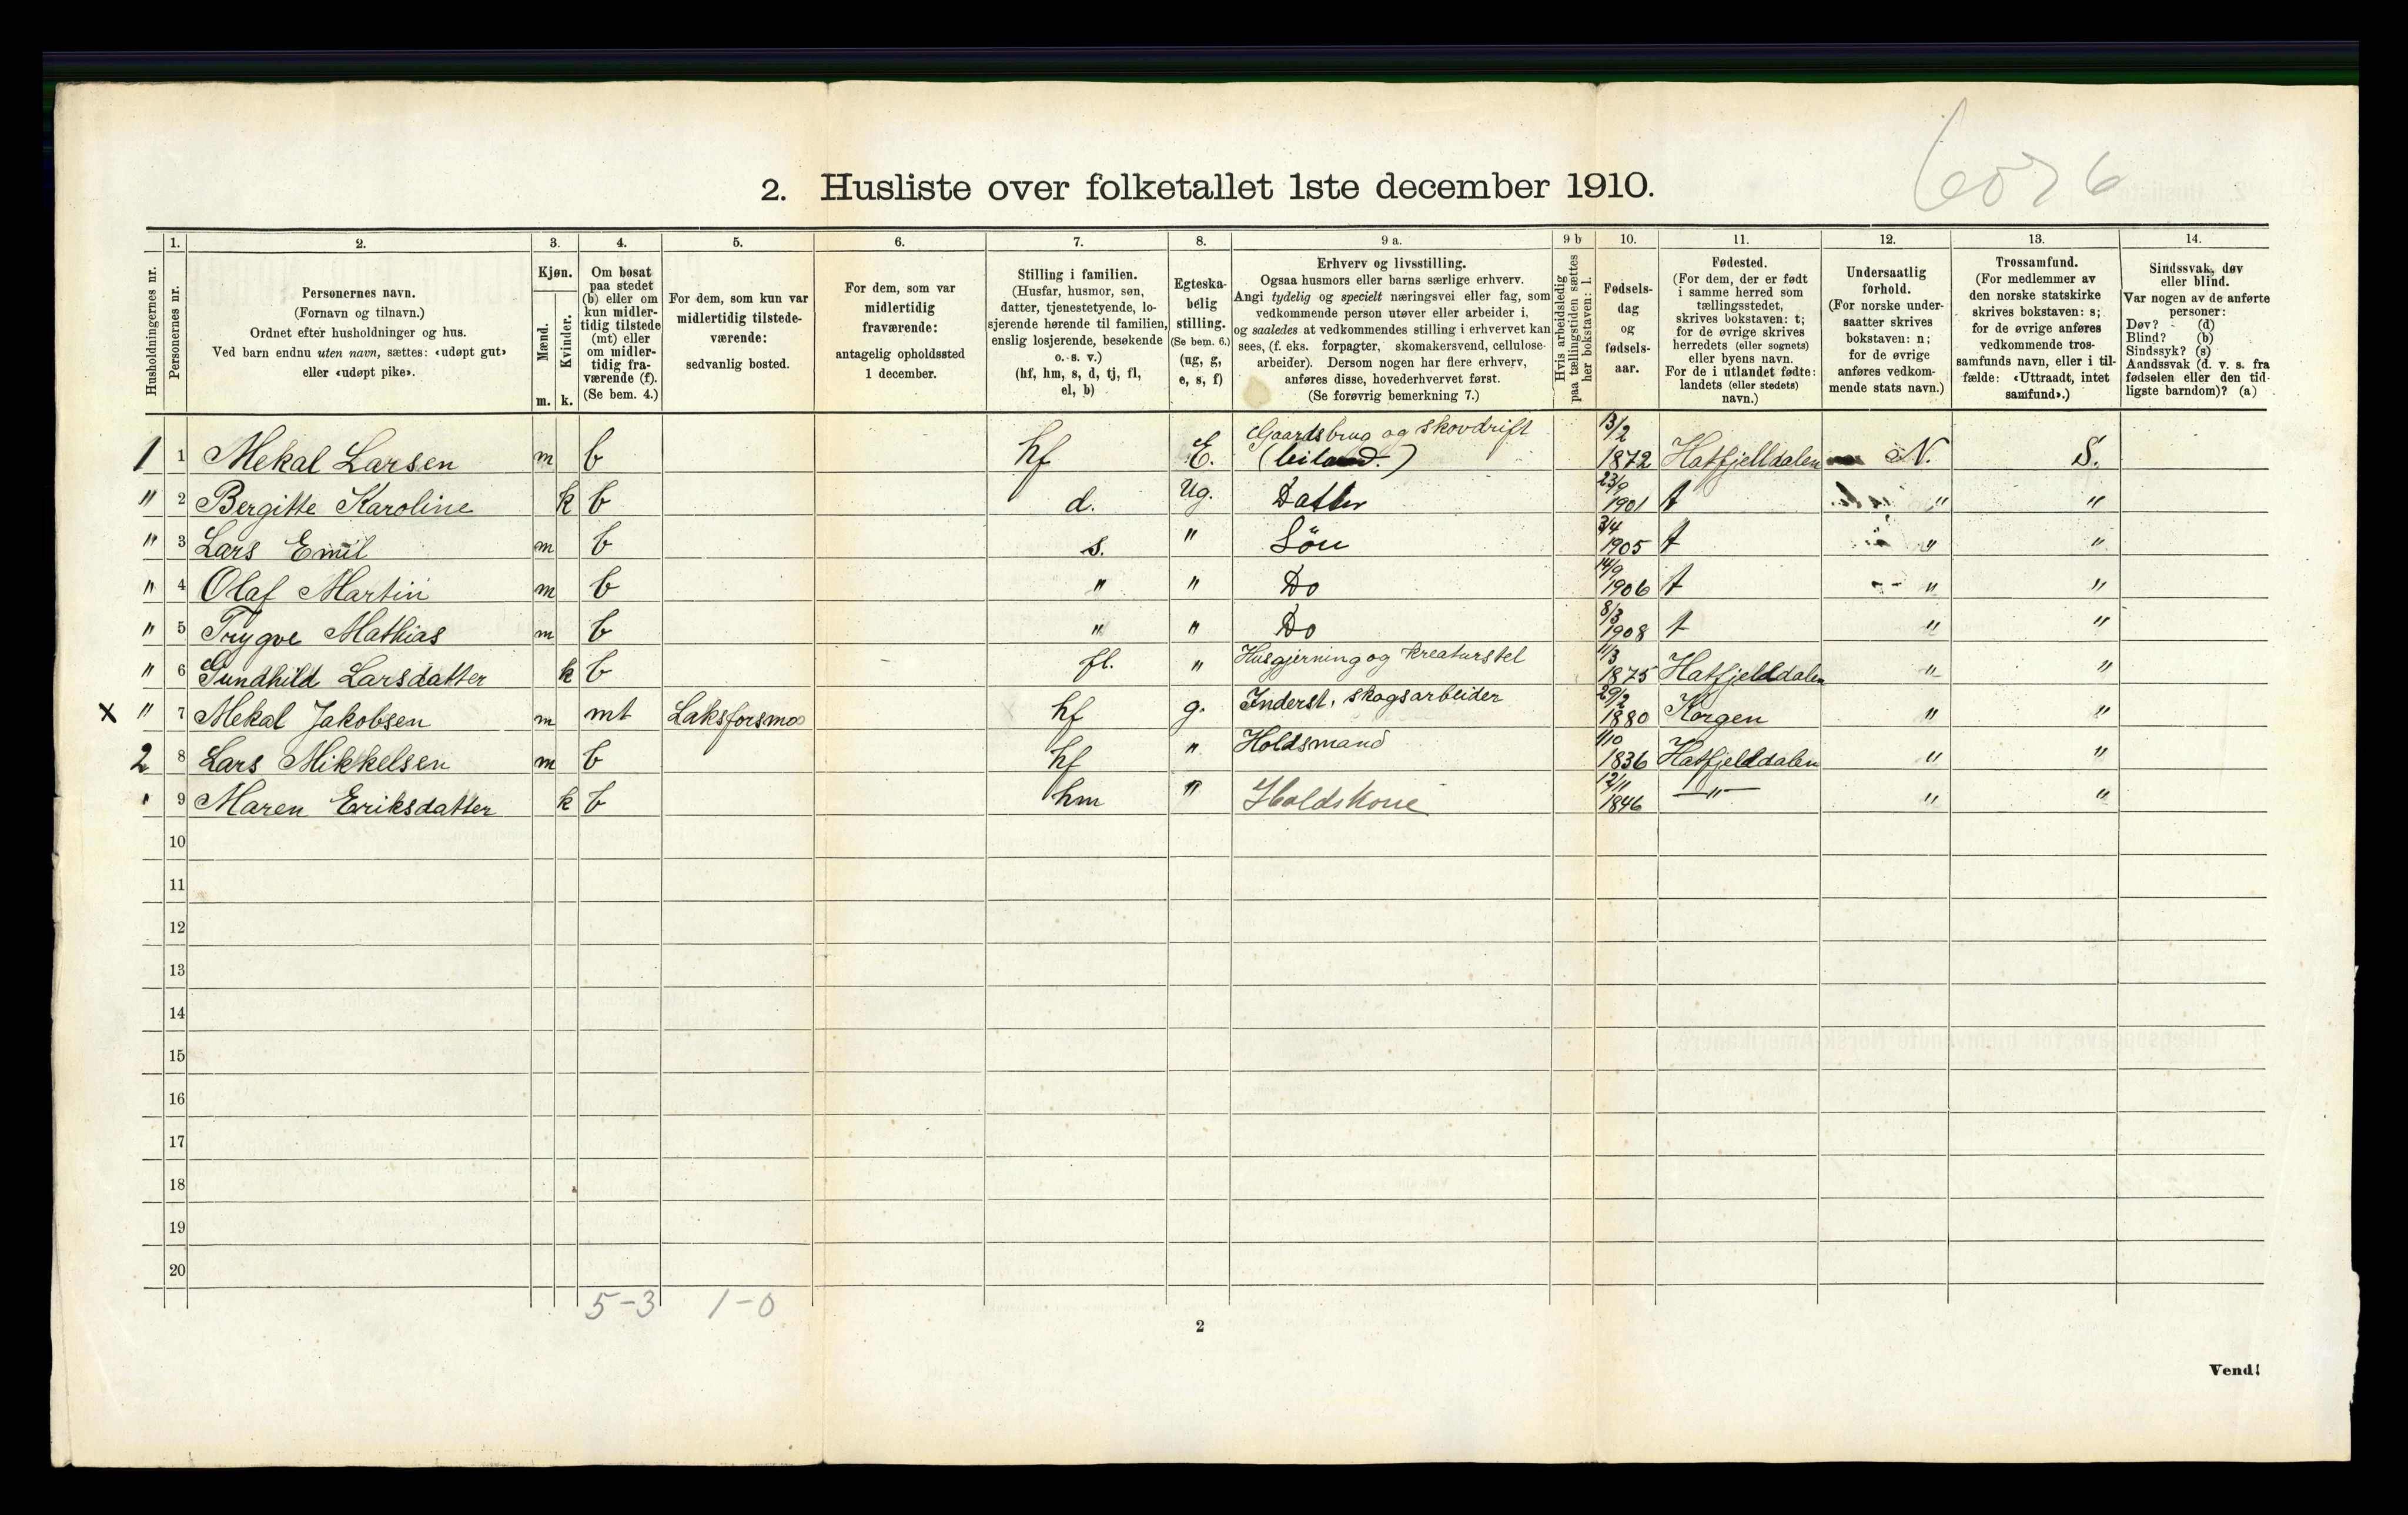 6076
2. Husliste over folketallet 1ste december 1910.
Husholdningernes nr.
1.
Personernes nr.
2.
Personernes navn.
(Fornavn og tilnavn.)
Ordnet efter husholdninger og hus.
Ved barn endnu uten navn, sættes: «udøpt gut»
eller «udøpt pike».
3.
Kjøn.
Mænd.
Kvinder.
m. k.
4.
Om bosat
paa stedet
(b) eller om
kun midler-
tidig tilstede
(mt) eller
om midler-
tidig fra-
værende (f).
(Se bem. 4.)
5.
For dem, som kun var
midlertidig tilstede-
værende:
sedvanlig bosted.
6.
For dem, som var
midlertidig
fraværende:
antagelig opholdssted
1 december.
7.
Stilling i familien.
(Husfar, husmor, søn,
datter, tjenestetyende, lo-
sjerende hørende til familien,
enslig losjerende, besøkende
o. s. v.)
(hf, hm, s, d, tj, fl,
el, b)
8.
Egteska-
belig
stilling.
(Se bem. 6.)
(ug, g,
e, s, f)
9 a.
Erhverv og livsstilling.
Ogsaa husmors eller barns særlige erhverv.
Angi tydelig og specielt næringsvei eller fag, som
vedkommende person utøver eller arbeider i,
og saaledes at vedkommendes stilling i erhvervet kan
sees, (f. eks. forpagter, skomakersvend, cellulose-
arbeider). Dersom nogen har flere erhverv,
anføres disse, hovederhvervet først.
(Se forøvrig bemerkning 7.)
9 b
Hvis arbeidsledig
paa tællingstiden sættes
her bokstaven: l.
10.
Fødsels-
dag
og
fødsels-
aar.
11.
Fødested.
(For dem, der er født
i samme herred som
tællingsstedet,
skrives bokstaven: t;
for de øvrige skrives
herredets (eller sognets)
eller byens navn.
For de i utlandet fødte:
landets (eller stedets)
navn.)
12.
Undersaatlig
forhold.
(For norske under-
saatter skrives
bokstaven: n;
for de øvrige
anføres vedkom-
mende stats navn.)
13.
Trossamfund.
(For medlemmer av
den norske statskirke
skrives bokstaven: s;
for de øvrige anføres
vedkommende tros-
samfunds navn, eller i til-
fælde: «Uttraadt, intet
samfund».)
14.
Sindssvak, døv
eller blind.
Var nogen av de anførte
personer:
Døv? (d)
Blind? (b)
Sindssyk? (s)
Aandssvak (d. v. s. fra
fødselen eller den tid-
ligste barndom)? (a)
1 1 Mekal Larsen m b hf E. Gaardsbrug og skovdrift (leiland.) 13/2 1872 Hatfjelldalen N. S.
" 2 Bergitte Karoline k b d. Ug. Datter 23/9 1901 t " "
" 3 Lars Emil m b s. " Sön 3/4 1905 t " "
" 4 Olaf Martin m b " " Do 14/9 1906 t " "
" 5 Trygve Mathias m b " " Do 8/3 1908 t " "
" 6 Gundhild Larsdatter k b fl. " Husgjerning og kreaturstel 11/3 1875 Hatfjelddalen " "
x " 7 Mekal Jakobsen m mt Laksforsmo hf g. Inderst, skogsarbeider 29/2 1880 Korgen " "
2 8 Lars Mikkelsen m b hf " Holdsmand 1/10 1836 Hatfjelddalen " "
" 9 Maren Eriksdatter k b hm " Holdskone 12/11 1846 —"— " "
10
11
12
13
14
15
16
17
18
19
20
5-3 1-0
2
Vend!